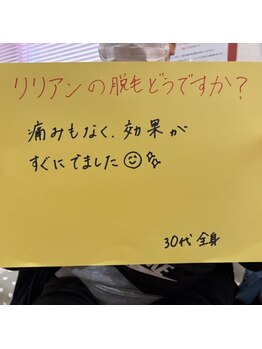 リリアンの脱毛どうですか?
痛みもなく、効果が
すぐにでました
30代 全身